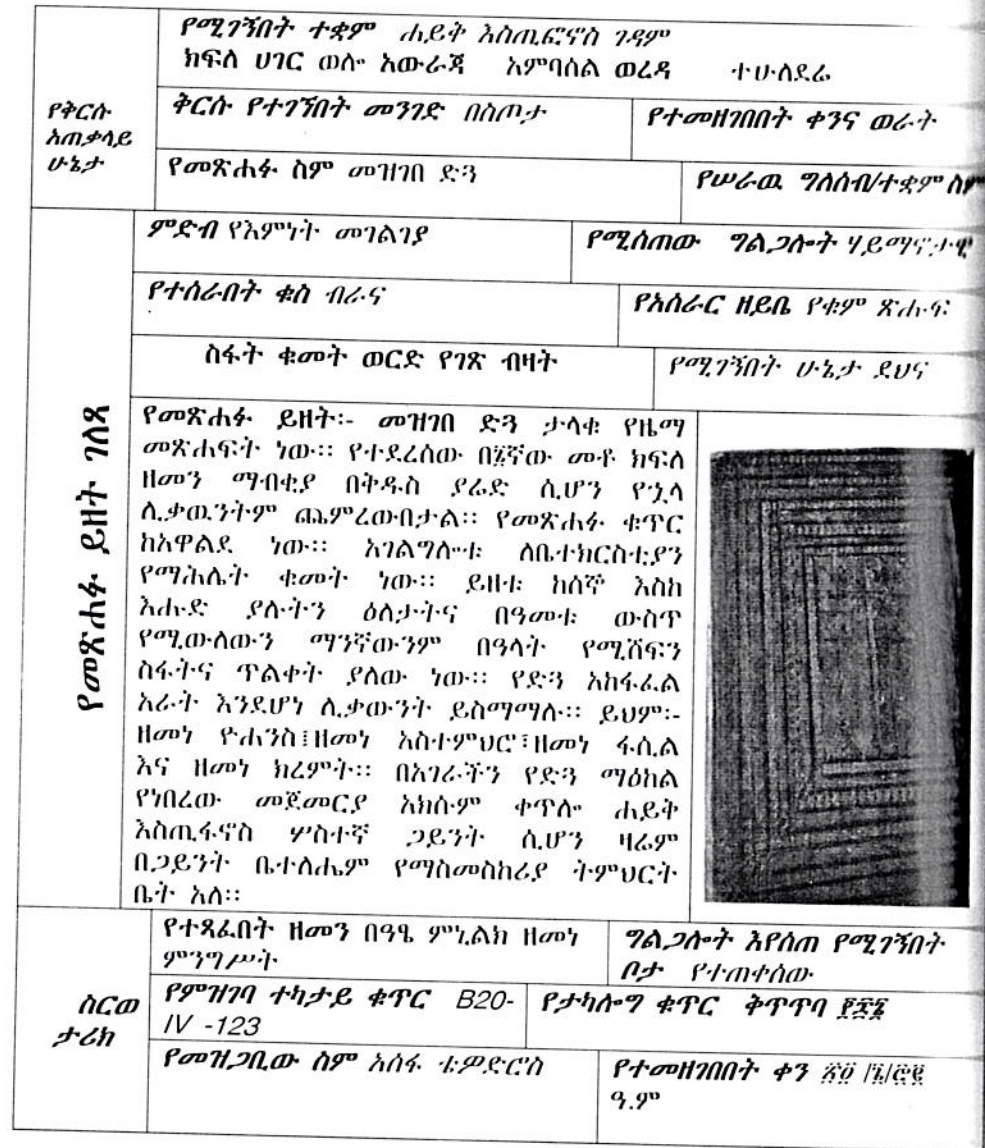 የሚገኝበት ተቋም ሐይቅ እስጢፎኖስ ገዳም
ክፍለ ሀገር ወሎ አውራጃ አምባሰል ወረዳ ተሁለደሬ
የቅርሱ
አጠቃላይ
ሁኔታ
ቅርሱ የተገኝበት መንገድ በስጦታ
የተመዘገበበት ቀንና ወራት
የመጽሐፉ ስም መዝገበ ድጓ
የሠራዉ ግለሰብ/ተቋም ስም
የመጽሐፉ ይዘት ገለጻ
ምድብ የእምነት መገልገያ
የሚሰጠው ግልጋሎት ሃይማኖታዊ
የተሰራበት ቁስ ብራና
የአሰራር ዘይቤ የቁም ጽሑፍ
ስፋት ቁመት ወርድ የገጽ ብዛት
የሚገኝበት ሁኔታ ደህና
የመጽሐፉ ይዘት፡- መዝገበ ድጓ ታላቁ የዜማ
መጽሐፍት ነው፡፡ የተደረሰው በ፮ኛው መቶ ክፍለ
ዘመን ማብቂያ በቅዱስ ያሬድ ሲሆን የኋላ
ሊቃዉንትም ጨምረውበታል፡፡ የመጽሐፉ ቁጥር
ከአዋልደ ነው፡፡ አገልግሎቱ ለቤተክርስቲያን
የማሕሌት ቁመት ነው፡፡ ይዘቱ ከሰኞ እስከ
እሑድ ያሉትን ዕለታትና በዓመቱ ውስጥ
የሚውለውን ማንኛውንም በዓላት የሚሸፍን
ስፋትና ጥልቀት ያለው ነው፡፡ የድጓ አከፋፈል
አራት እንደሆነ ሊቃውንት ይስማማሉ፡፡ ይህም፡-
ዘመነ ዮሐንስ፤ዘመነ አስተምህሮ፣ዘመነ ፋሲል
እና ዘመነ ክረምት፡፡ በአገራችን የድጓ ማዕከል
የነበረው መጀመርያ አክሱም ቀጥሎ ሐይቅ
እስጢፋኖስ ሦስተኛ ጋይንት ሲሆን ዛሬም
በጋይንት ቤተልሔም የማስመስከሪያ ትምህርት
ቤት አለ፡፡
ስርወ
ታሪክ
የተጻፈበት ዘመን በዓፄ ምኒልክ ዘመነ
ምንግሥት
ግልጋሎት እየሰጠ የሚገኝበት
ቦታ የተጠቀሰው
የምዝገባ ተካታይ ቁጥር B20-
IV -123
የታካሎግ ቁጥር ቅጥጥባ
የመዝጋቢው ስም አሰፋ ቴዎድሮስ
የተመዘገበበት ቀን
ዓ.ም